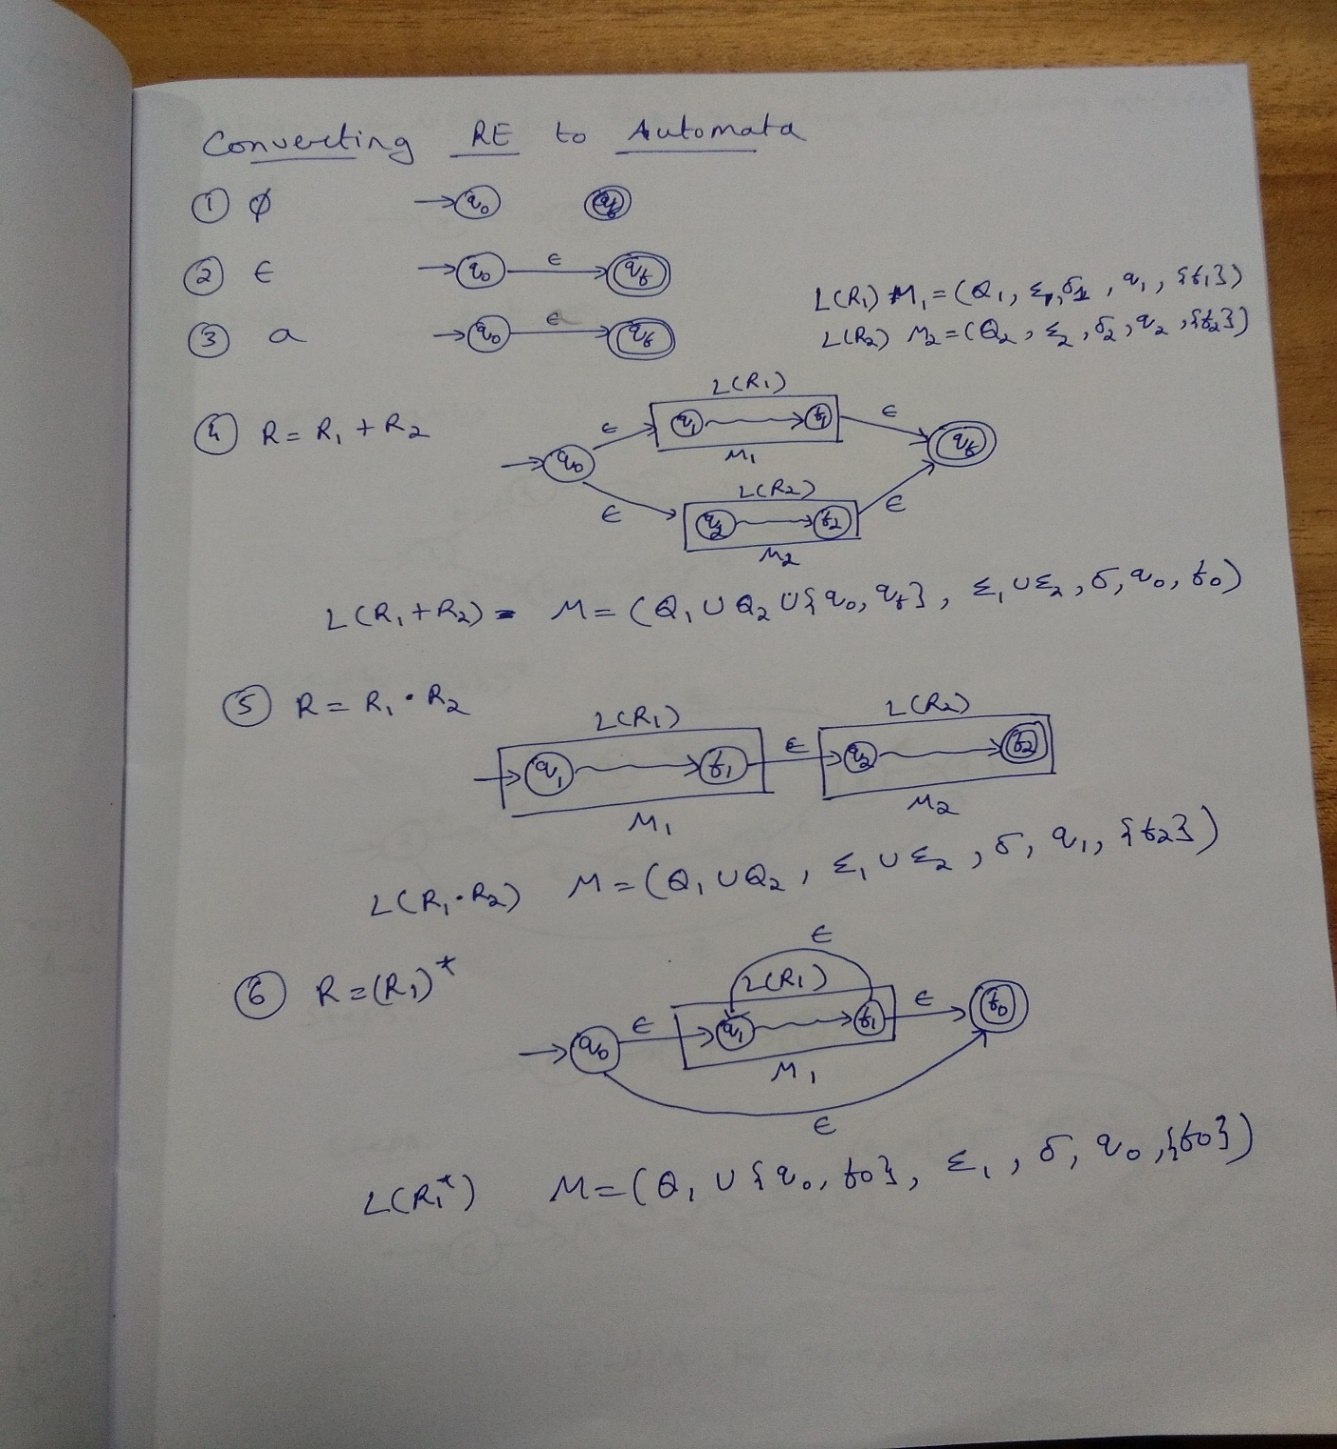 Converting RE to Automata
① ϕ → q₀ qf
② ϵ → q₀ ϵ qf
③ a → q₀ qf
L(R₁) M₁ = (Q₁, Σ₁, δ₁, q₁, {f₁})
L(R₂) M₂ = (Q₂, Σ₂, δ₂, q₂, {f₂})
④ R = R₁ + R₂
L(R₁)
ϵ q₁ f₁ ϵ
M₁
q₀ qf
L(R₂)
ϵ q₂ f₂ ϵ
M₂
L(R₁+R₂) = M = (Q₁ ∪ Q₂ ∪ {q₀, qf}, Σ₁ ∪ Σ₂, δ, q₀, f₀)
⑤ R = R₁ · R₂
L(R₁) L(R₂)
q₁ f₁ ϵ q₂ f₂
M₁ M₂
L(R₁·R₂) M = (Q₁ ∪ Q₂, Σ₁ ∪ Σ₂, δ, q₁, {f₂})
⑥ R = (R₁)*
ϵ
L(R₁)
q₀ ϵ q₁ f₁ ϵ f₀
M₁
ϵ
L(R₁*) M = (Q₁ ∪ {q₀, f₀}, Σ₁, δ, q₀, {f₀})